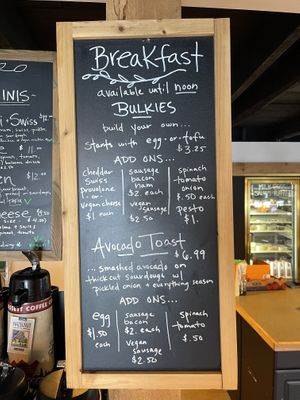 Breakfast
available until noon
BULKIES
build your own...
starts with egg-or-tofu
$3.25
ADD ONS...
cheddar
swiss
provolone
-or-
vegan cheese
$1 each
sausage
bacon
ham
$2. each
vegan
sausage
$2.50
spinach
tomato
onion
$.50 each
pesto
$1.
Avocado Toast
$6.99
...smashed avocado on
thick cut sourdough w/
pickled onion + everything season
ADD ONS...
egg
$1.50
each
sausage
bacon
$2. each
vegan
sausage
$2.50
spinach
tomato
$.50
INIS-
Swiss